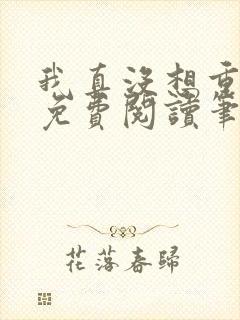 我真没想重
免費閱讀筆
花落春歸